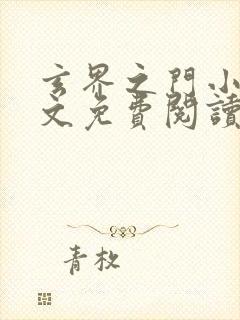 玄界之門小
文免費閱讀
青枚